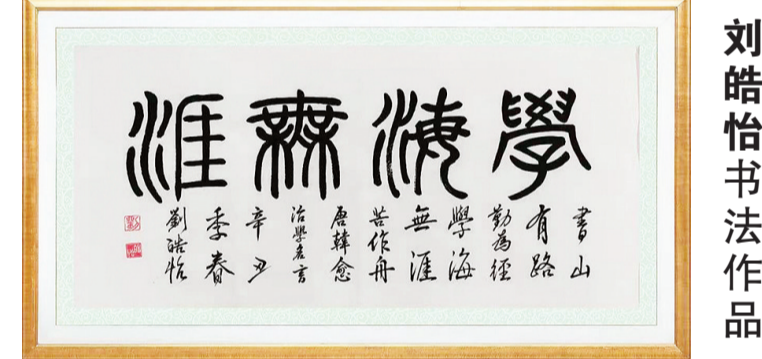 學海無涯
書山
有路
勤為徑
學海
無涯
苦作舟
唐韓愈
治學名言
辛丑
季春
劉皓怡
刘皓怡书法作品